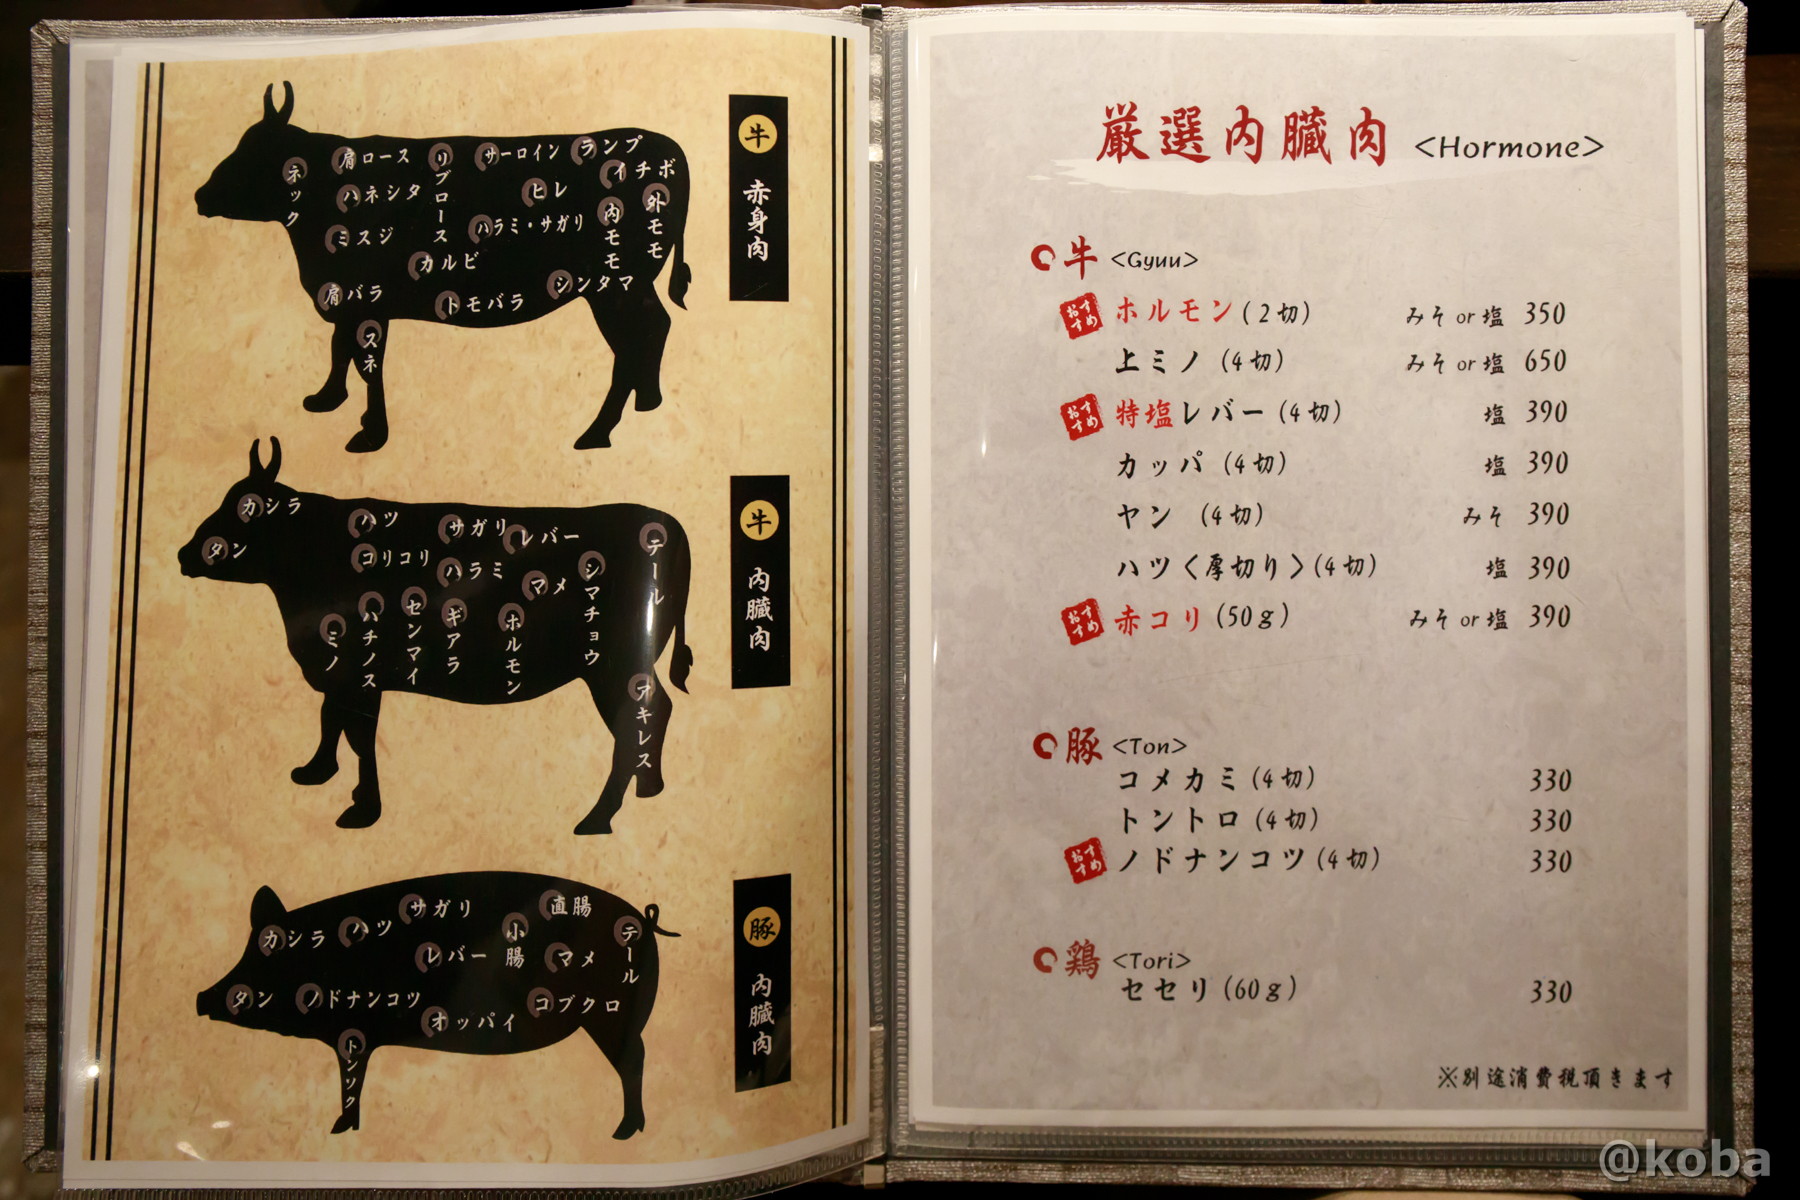 牛 赤身肉
ネック
肩ロース
リブロース
サーロイン
ランプ
イチボ
ハネシタ
ヒレ
外モモ
内モモ
ミスジ
ハラミ・サガリ
カルビ
シンタマ
肩バラ
トモバラ
スネ
牛 内臓肉
カシラ
タン
ハツ
コリコリ
サガリ
レバー
ハラミ
マメ
シマチョウ
テール
ミノ
ハチノス
センマイ
ギアラ
ホルモン
オキレス
豚 内臓肉
カシラ
ハツ
サガリ
直腸
レバー
小腸
マメ
テール
タン
ノドナンコツ
オッパイ
コブクロ
トンソク
厳選内臓肉 <Hormone>
牛 <Gyuu>
おすすめ ホルモン(2切) みそ or 塩 350
上ミノ(4切) みそ or 塩 650
おすすめ 特塩レバー(4切) 塩 390
カッパ(4切) 塩 390
ヤン (4切) みそ 390
ハツ〈厚切り〉(4切) 塩 390
おすすめ 赤コリ(50g) みそ or 塩 390
豚 <Ton>
コメカミ(4切) 330
トントロ(4切) 330
おすすめ ノドナンコツ(4切) 330
鶏 <Tori>
セセリ(60g) 330
※別途消費税頂きます
@koba